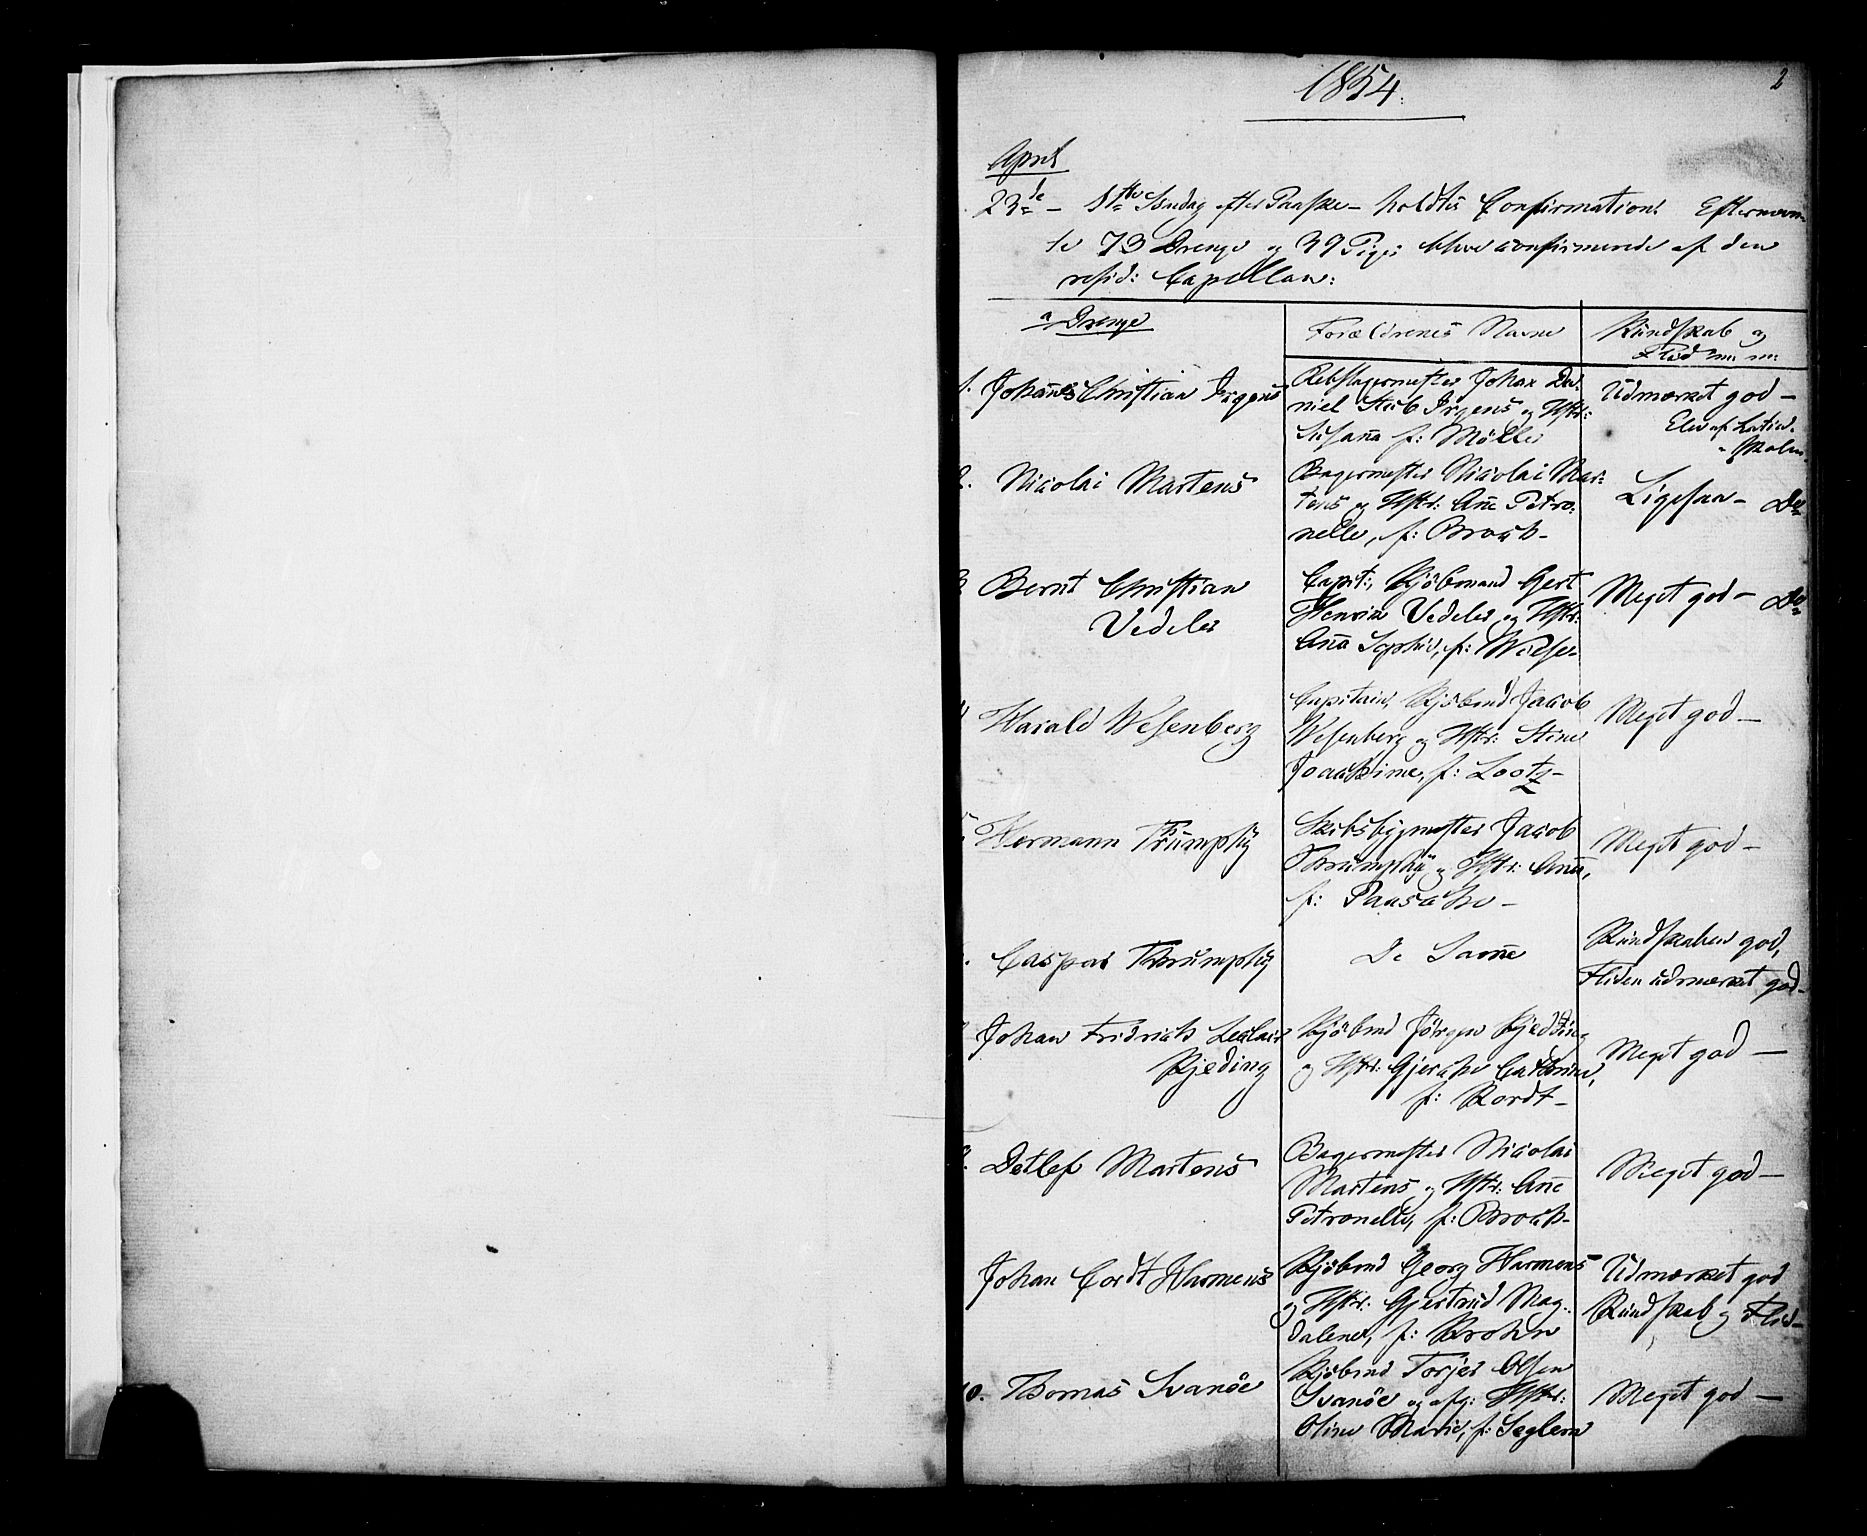 1854.
2
April
23de – 1ste Søndag efter Paaske – holdtes Confirmation. Efternævn-
te 73 Drenge og 39 Piger bleve confirmerede af den
resid: Capellan:
a, Drenge
Forældrenes Navne
Kundskab og
Flid
1. Johannes Christian Irgens
Rebslagermester Johan Da-
niel Stub Irgens og Hstr:
Susanna f: Möller
Udmærket god –
Elev af Latin-
skolen
2. Nicolai Martens
Bagermester Nicolai Mar-
tens og Hstr: Ane Petro-
nelle, f: Brock –
Ligesaa – Do
3. Bernt Christian
Vedeler
Capit:, Kjöbmand Gert
Henrik Vedeler og Hstr:
Anna Sophie, f:
Meget god – Do
Harald Wesenberg
Capitain, Kjöbmd Jacob
Wesenberg og Hstr: Stine
Joachime, f: Lootz –
Meget god –
5. Hermann Thrumphy
Skibsbygmester Jacob
Thrumphy og Hstr: Anna,
f: Pansche –
Meget god –
Caspar Thrumphy
De Samme
Kundskaben god,
Fliden udmærket god –
Johan Fridrich
Kjeding
Kjöbmd Jörgen Kjeding
og Hstr: Gjesche Cathrine,
f: Kordt –
Meget god –
Detlef Martens
Bagermester Nicolai
Martens og Hstr: Ane
Petronelle, f: Brock –
Meget god –
Johan Cordt Harmens
Kjöbmd Georg Harmens
og Hstr: Gjertrud Mag-
dalene, f: Krohn
Udmærket god
Kundskab og Flid –
10. Thomas Svanöe
Kjöbmd Torjer Olsen
Svanöe og afg: Hstr:
Oline Marie, f: Seglem
Meget god –